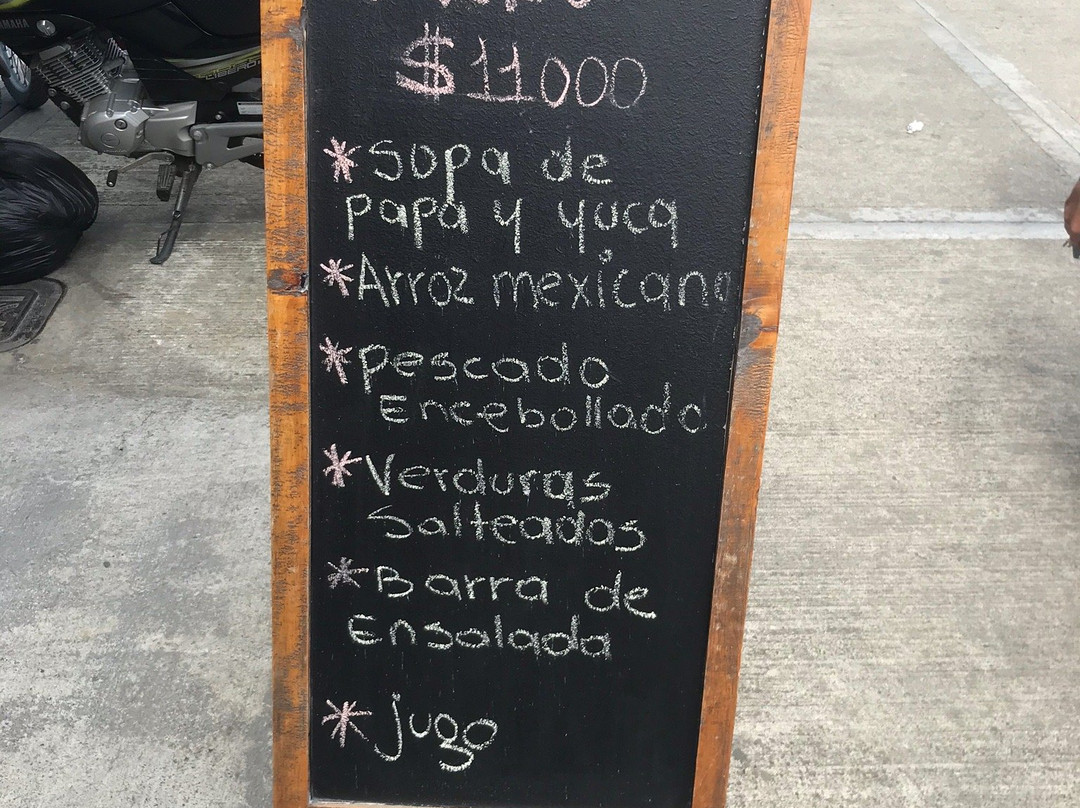 YAMAHA
$11000
*Sopa de
papa y yuca
*Arroz mexicano
*Pescado
Encebollado
*Verduras
Salteadas
*Barra de
Ensalada
*jugo